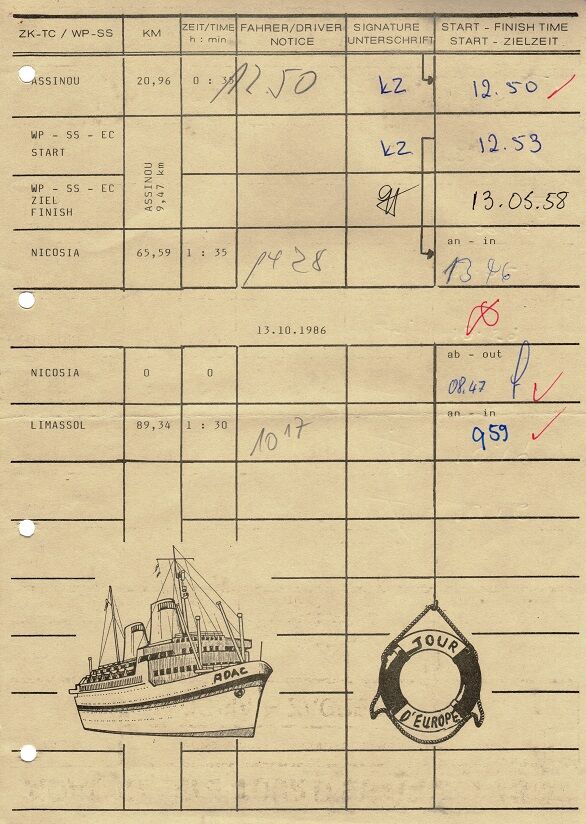 ZK-TC / WP-SS KM ZEIT/TIME h : min FAHRER/DRIVER NOTICE SIGNATURE UNTERSCHRIFT START - FINISH TIME START - ZIELZEIT
ASSINOU 20,96 0 : 35 12.50 KZ 12.50
WP - SS - EC
START
ASSINOU
9,47 km
KZ 12.53
WP - SS - EC
ZIEL
FINISH
13.05.58
NICOSIA 65,59 1 : 35 14 28 an - in
13 46
13.10.1986
NICOSIA 0 0 ab - out
08.47
LIMASSOL 89,34 1 : 30 10 17 an - in
9 59
ADAC
TOUR
D'EUROPE